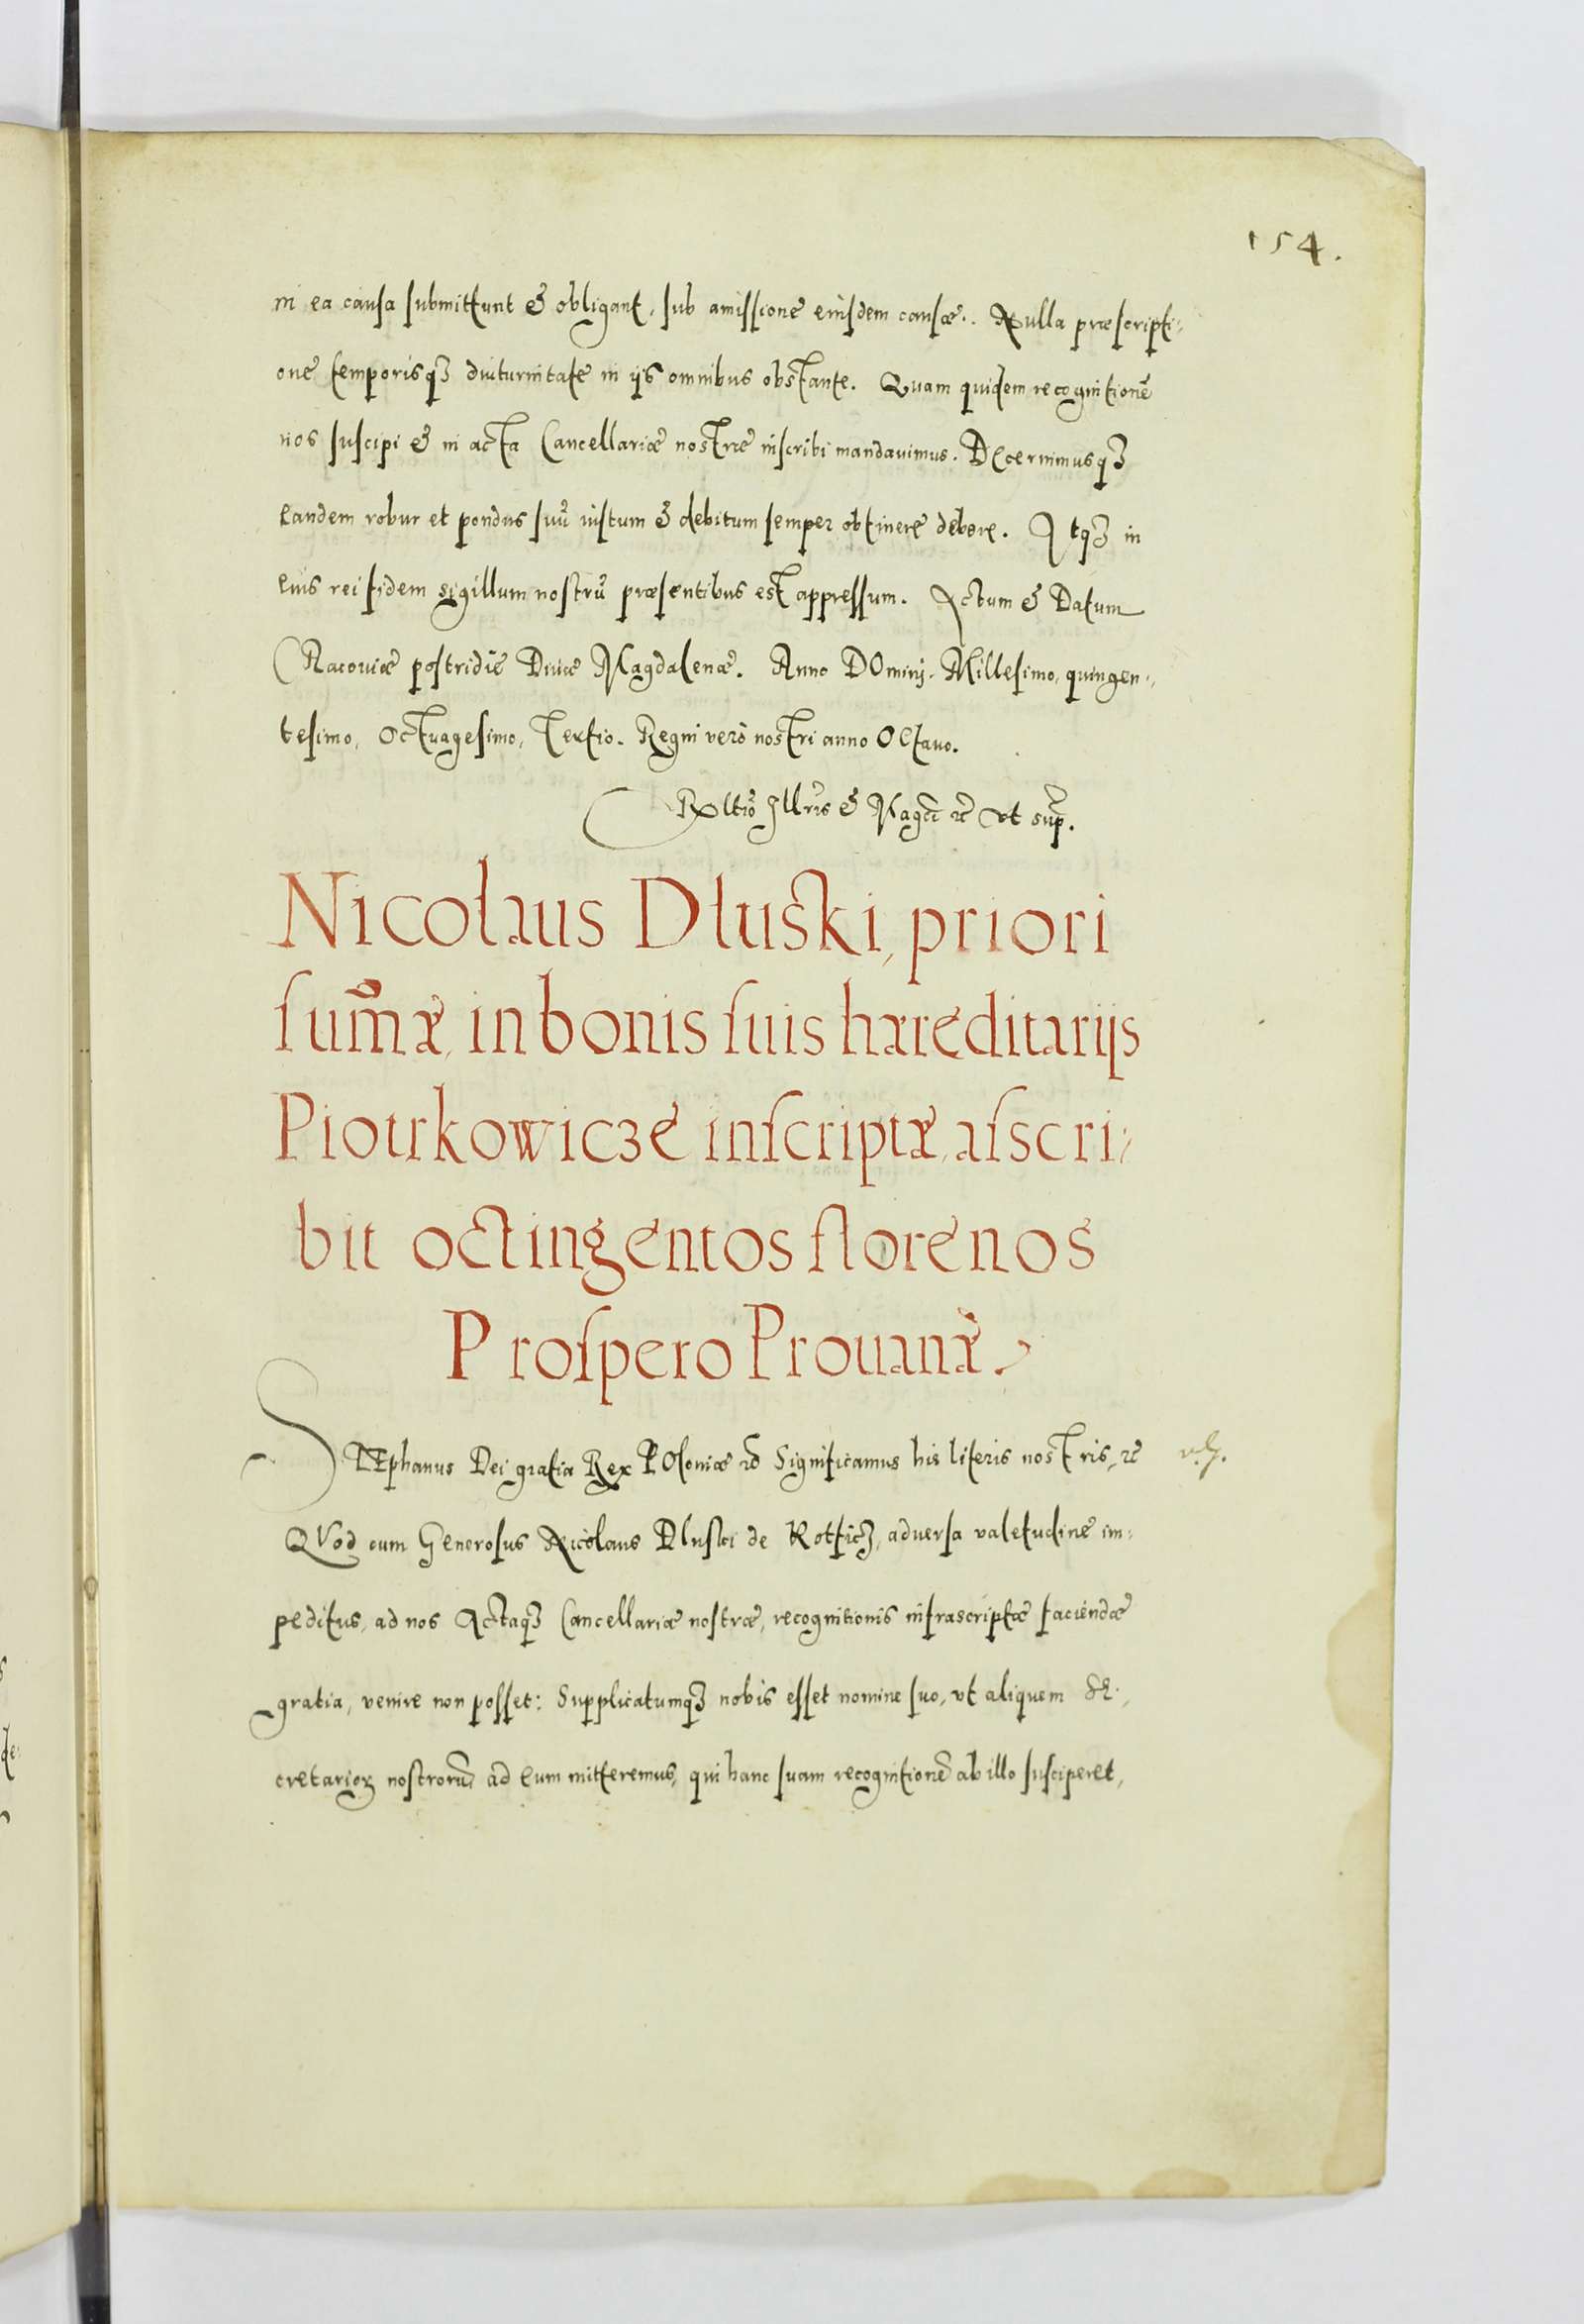 154.
in ea causa submittunt & obligant, sub amissione eiusdem causæ. Nulla præscripti-
one temporisq₃ diuturnitate in ijs omnibus obstante. Quam quidem recognitionē
nos suscipi & in acta Cancellariæ nostræ inscribi mandauimus. Decernimusq₃
eandem robur et pondus suū iustum & debitum semper obtinere debere. Itq₃ in
eius rei fidem sigillum nostrū præsentibus est appressum. Actum & Datum
Cracouiæ postridie Diuæ Magdalenæ. Anno DOmini. Millesimo, quingen-
tesimo, Octuagesimo, Tertio. Regni verò nostri anno OCtauo.
Rltio Illris & Magci rc vt sup.
Nicolaus Dluski, priori
sum̄æ, in bonis suis hæreditarijs
Piotrkowicze inscriptæ, asscri-
bit octingentos florenos
Prospero Prouanæ.
STEphanus Dei gratia Rex POloniæ rc Significamus his literis nostris, rc
QVod cum Generosus Nicolaus Dluski de , aduersa valetudine im-
peditus, ad nos Actaq₃ Cancellariæ nostræ, recognitionis infrascriptæ faciendæ
gratia, venire non posset: Supplicatumq₃ nobis esset nomine suo, vt aliquem SE-
cretarioꝝ nostrorū, ad eum mitteremus, qui hanc suam recognitionē ab illo susciperet,